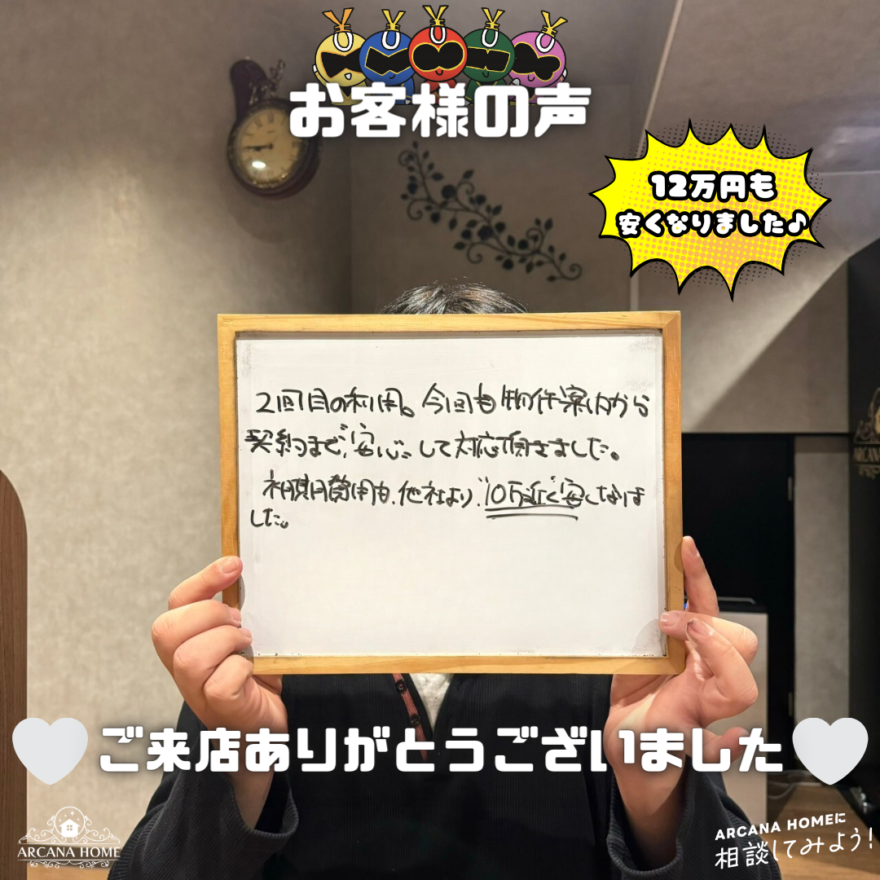 お客様の声
12万円も
安くなりました♪
2回目の利用。今回も物件案内から
契約まで、安心して対応頂きました。
初期費用も、他社より、10万近く安くなりま
した。
ご来店ありがとうございました
ARCANA HOME
ARCANA HOMEに
相談してみよう!